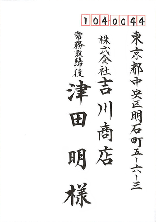 1040044
東京都中央区明石町五-六-三
株式会社吉川商店
常務取締役
津田明様